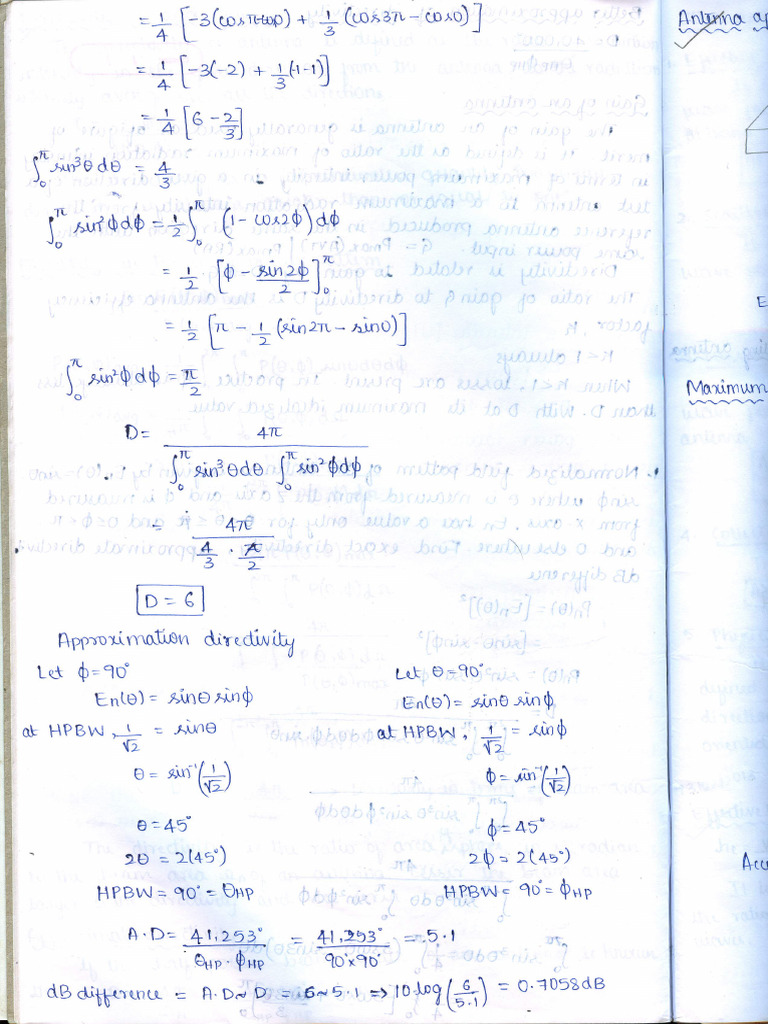 = 1/4 [-3(cosπ-cos0) + 1/3 (cos3π - cos0)]
= 1/4 [-3(-2) + 1/3 (-1-1)]
= 1/4 [6 - 2/3]
∫₀^π sin³θ dθ = 4/3
∫₀^π sin²ϕ dϕ = 1/2 ∫₀^π (1 - cos2ϕ) dϕ
= 1/2 [ϕ - sin2ϕ/2]₀^π
= 1/2 [π - 1/2 (sin2π - sin0)]
∫₀^π sin²ϕ dϕ = π/2
D = 4π / (∫₀^π sin³θ dθ ∫₀^π sin²ϕ dϕ)
= 4π / (4/3 · π/2)
D = 6
Approximation directivity
Let ϕ = 90°
En(θ) = sinθ sinϕ
at HPBW, 1/√2 = sinθ
θ = sin⁻¹(1/√2)
θ = 45°
2θ = 2(45°)
HPBW = 90° = θHP
Let θ = 90°
En(θ) = sinθ sinϕ
at HPBW, 1/√2 = sinϕ
ϕ = sin⁻¹(1/√2)
ϕ = 45°
2ϕ = 2(45°)
HPBW = 90° = ϕHP
A.D = 41,253°/(θHP · ϕHP) = 41,253°/(90°×90°) = 5.1
dB difference = A.D ~ D = 6 ~ 5.1 ⇒ 10 log(6/5.1) = 0.7058dB
Antenna ap
E
Maximum
Acce